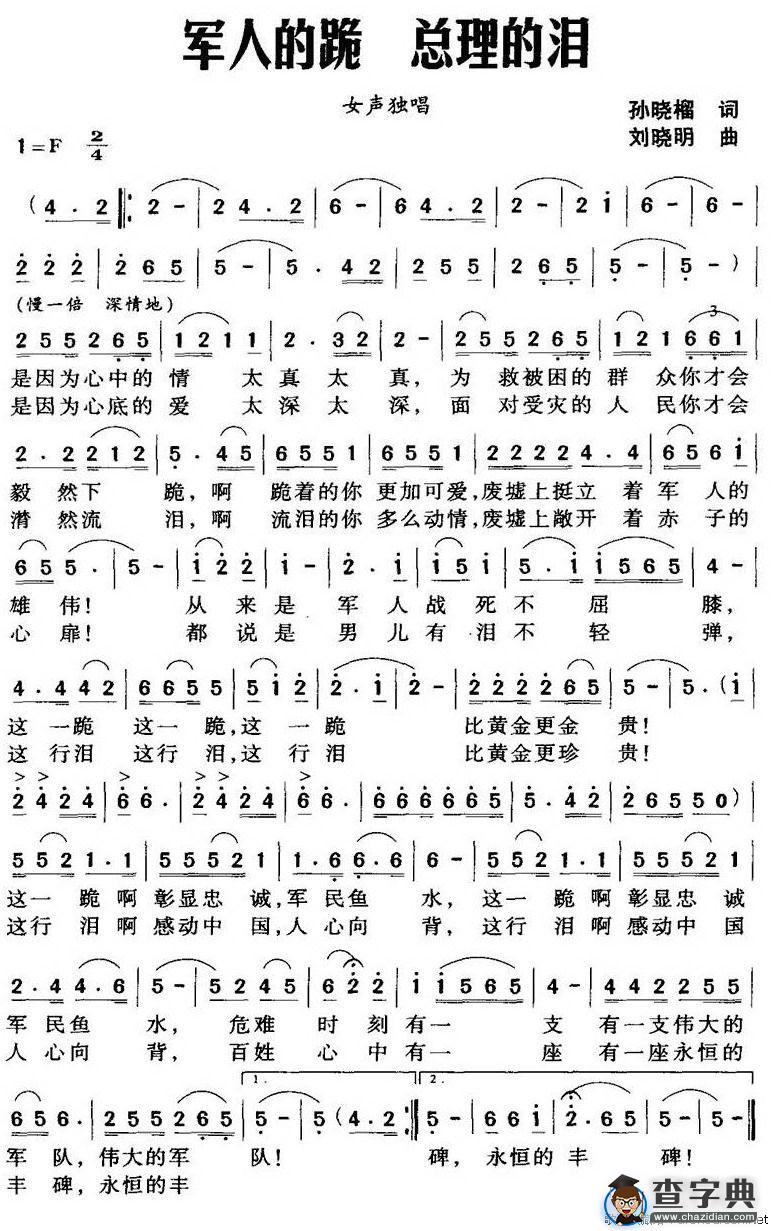 军人的跪 总理的泪
女声独唱
孙晓榴 词
刘晓明 曲
1=F 2/4
(4.2 |: 2 - | 2 4.2 | 6 - | 6 4.2 | 2 - | 2 i | 6 - | 6 -
2 2 2 | 2 6 5 | 5 - | 5. 4 2 | 2 5 5 | 2 6 5 | 5 - | 5 - )
(慢一倍 深情地)
2 5 5 2 6 5 | 1 2 1 1 | 2. 3 2 | 2 - | 2 5 5 2 6 5 | 1 2 1 6 6 1
是因为心中的 情 太真太 真, 为 救被困的 群 众你才会
是因为心底的 爱 太深太 深, 面 对受灾的 人 民你才会
2. 2 2 1 2 | 5. 4 5 | 6 5 5 1 | 6 5 5 1 | 2 2 2 2 4.4 | 6 5 6 i
毅 然下 跪, 啊 跪着的你 更加可爱, 废墟上挺立 着 军 人的
潸 然流 泪, 啊 流泪的你 多么动情, 废墟上敞开 着 赤 子的
6 5 5. | 5 - | i i 2 | i - | 2. i | i 5 i | 5. i | i 5 6 5 | 4 -
雄 伟! 从 来是 军 人 战死不 屈 膝,
心 扉! 都 说是 男 儿 有泪不 轻 弹,
4. 4 4 2 | 6 6 5 5 | 5 i 2 | 2. i | 2 - | 2 2 2 2 6 5 | 5 - | 5. (i
这 一跪 这一 跪, 这 一 跪 比黄金更金 贵!
这 行泪 这行 泪, 这 行 泪 比黄金更珍 贵!
2 4 2 4 | 6 6. | 2 4 2 4 | 6 6. | 6 6 6 6 6 5 | 5. 4 2 | 2 6 5 5 0 )
5 5 2 1.1 | 5 5 5 2 1 | 1.6 6.6 | 6 - | 5 5 2 1.1 | 5 5 5 2 1
这一 跪 啊 彰显忠 诚, 军 民鱼 水, 这一 跪 啊 彰显忠 诚
这行 泪 啊 感动中 国, 人 心向 背, 这行 泪 啊 感动中 国
2. 4 4. 6 | 5 - | 5 2 4 5 | 6 2 2 | i i 5 6 5 | 4 - | 4 4 2 2 5 5
军 民鱼 水, 危难 时 刻 有一 支 有一支伟大的
人 心向 背, 百姓 心 中 有一 座 有一座永恒的
1. 2.
6 5 6. | 2 5 5 2 6 5 | 5 - | 5 (4.2 :| 5 - | 6 6 i | 2. 6 5 | 5 - |
军 队, 伟大的军 队! 碑, 永恒的 丰 碑!
丰 碑, 永恒的丰
查字典
www.chazidian.com